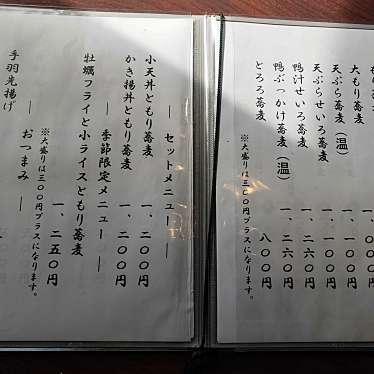 大もり蕎麦
天ぷら蕎麦(温) 一、一〇〇円
天ぷらせいろ蕎麦 一、一〇〇円
鴨汁せいろ蕎麦 一、二六〇円
鴨ぶっかけ蕎麦(温) 一、二六〇円
とろろ蕎麦 八〇〇円
※大盛りは三〇〇円プラスになります。
― セットメニュー ―
小天丼ともり蕎麦 一、二〇〇円
かき揚丼ともり蕎麦 一、二〇〇円
― 季節限定メニュー ―
牡蠣フライと小ライスともり蕎麦 一、二五〇円
※大盛りは三〇〇円プラスになります。
― おつまみ ―
手羽先揚げ